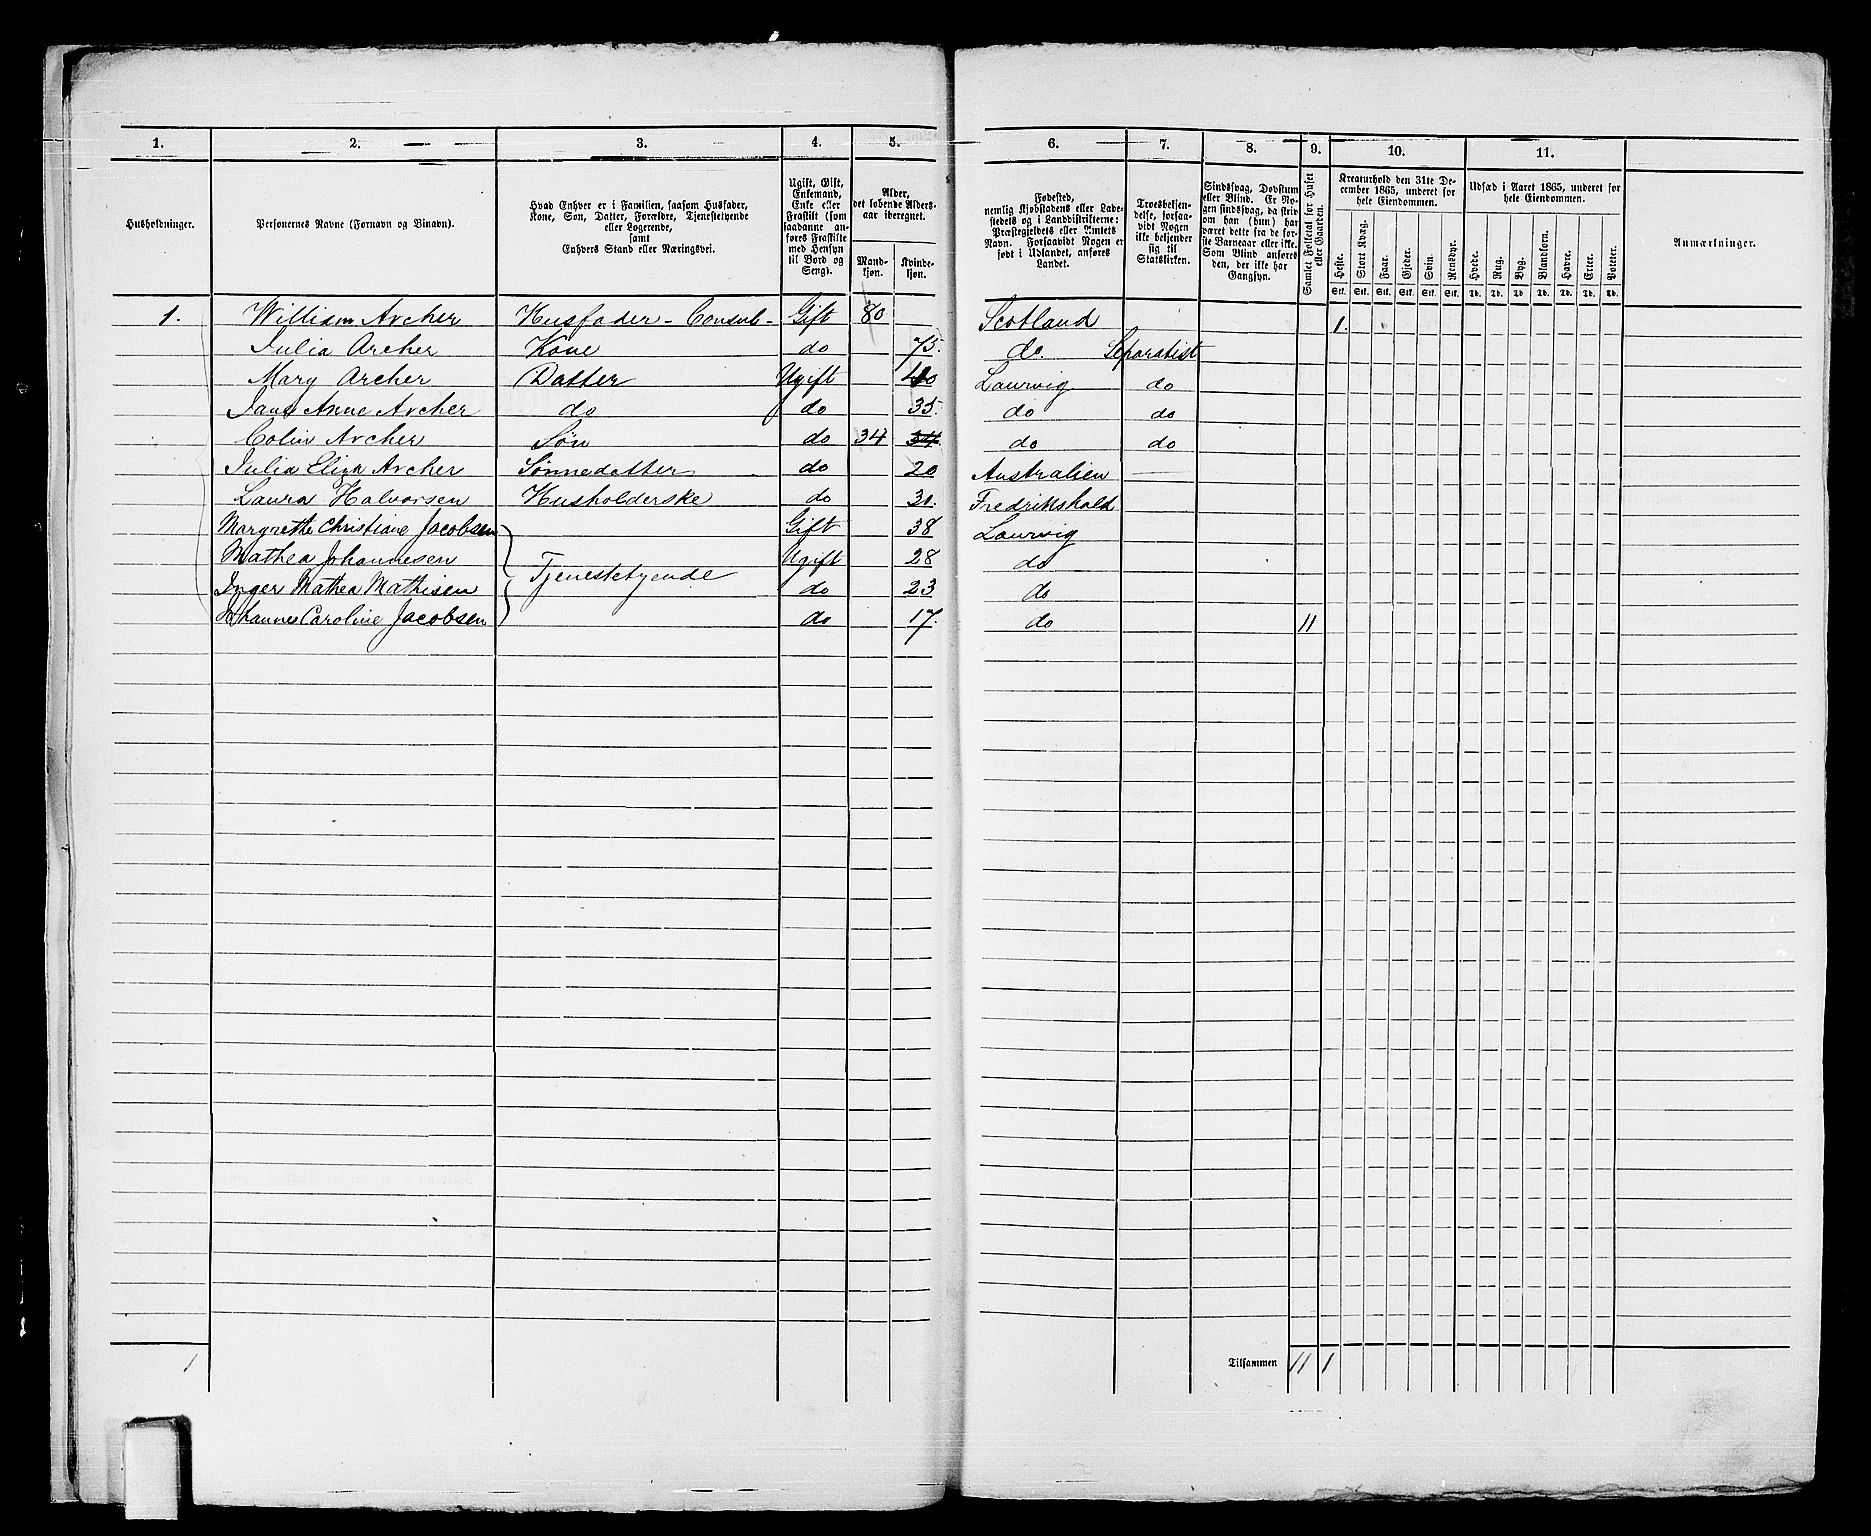 1. 2. 3. 4. 5. 6. 7. 8. 9. 10. 11.
Husholdninger.
Personernes Navne (Fornavn og Binavn).
Hvad Enhver er i Familien, saasom Husfader,
Kone, Søn, Datter, Forældre, Tjenestetyende
eller Logerende,
samt
Enhvers Stand eller Næringsvei.
Ugift, Gift,
Enkemand,
Enke eller
Fraskilt (som
saadanne an-
føres Fraskilte
med Hensyn
til Bord og
Seng).
Alder,
det løbende Alders-
aar iberegnet.
Mand-
kjøn.
Kvinde-
kjøn.
Fødested,
nemlig Kjøbstadens eller Lade-
stedets og i Landdistrikterne:
Præstegjeldets eller Amtets
Navn. Forsaavidt Nogen er
født i Udlandet, anføres
Landet.
Troesbekjen-
delse, forsaa-
vidt Nogen
ikke bekjender
sig til
Statskirken.
Sindssvag, Døvstum
eller Blind. Er No-
gen sindssvag, da skriv
om han (hun) har
været dette fra de før-
ste Barneaar eller ikke.
Som Blind anføres
den, der ikke har
Gangsyn.
Samlet Folketal for Huset
eller Gaarden.
Kreaturhold den 31te De-
cember 1865, underet for
hele Eiendommen.
Heste. Stort Kvæg. Faar. Gjeder. Svin. Rensdyr.
Stk. Stk. Stk. Stk. Stk. Stk.
Udsæd i Aaret 1865, underet for
hele Eiendommen.
Hvede. Rug. Byg. Blandkorn. Havre. Erter. Poteter.
Td. Td. Td. Td. Td. Td. Td.
Anmærkninger.
1. William Archer Husfader - Consul - Gift 80 Scotland 1.
Julia Archer Kone do 75. do. Separatist
Mary Archer Datter Ugift 40 Laurvig do
Jane Anne Archer do do 35. do do
Colin Archer Søn do 34 34 do do
Julia Eliza Archer Sønnedatter do 20 Australien
Laura Halvorsen Husholderske do 31. Fredrikshald
Margrethe Christiane Jacobsen Gift 38 Laurvig
Mathea Johannesen Tjenestetyende Ugift 28 do
Inger Mathea Mathisen do 23 do
Johanne Caroline Jacobsen do 17. do 11
1 Tilsammen 11 1